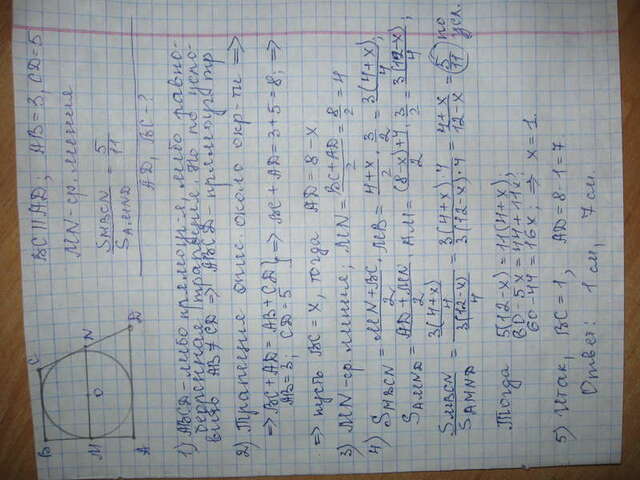 B C
M O N
A D
BC∥AD; AB=3, CD=5
MN-ср. линия
S_MBCN / S_AMND = 5/11
AD, BC-?
1) ABCD-либо прямоуг-я либо равно-
бедренная трапеция. Но по усло-
вию AB≠CD => ABCD прямоуг. тр
2) Трапеция опис около окр-ти =>
=> BC+AD=AB+CD
AB=3; CD=5 } => BC+AD=3+5=8; =>
=> пусть BC=x, тогда AD=8-x
3) MN-ср. линия; MN = (BC+AD)/2 = 8/2 = 4
4) S_MBCN = (MN+BC)/2 · MB = (4+x)/2 · 3/2 = 3(4+x)/4;
S_AMND = (AD+MN)/2 · AM = ((8-x)+4)/2 · 3/2 = 3(12-x)/4;
S_MBCN / S_AMND = (3(4+x)/4) / (3(12-x)/4) = 3(4+x)·4 / 3(12-x)·4 = (4+x)/(12-x) = 5/11 по усл.
Тогда 5(12-x)=11(4+x);
60-5x=44+11x;
60-44=16x; => x=1.
5) Итак, BC=1, AD=8-1=7.
Ответ: 1 см, 7 см.